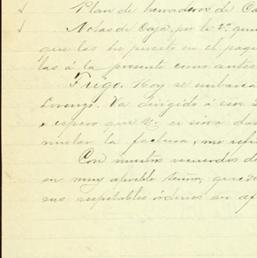 Plan de herraderos de Ca
Notas de Caja, por la 2ª quin
que las he puesto en el paque
las á la presente como antes
Trigo. Hoy se embarca
Lorenzo. Va dirigido á esa
espero que V. se sirva dar
mular la factura, me refi
Con nuestros recuerdos de
su muy apreble señora, que
sus respetables órdenes su af